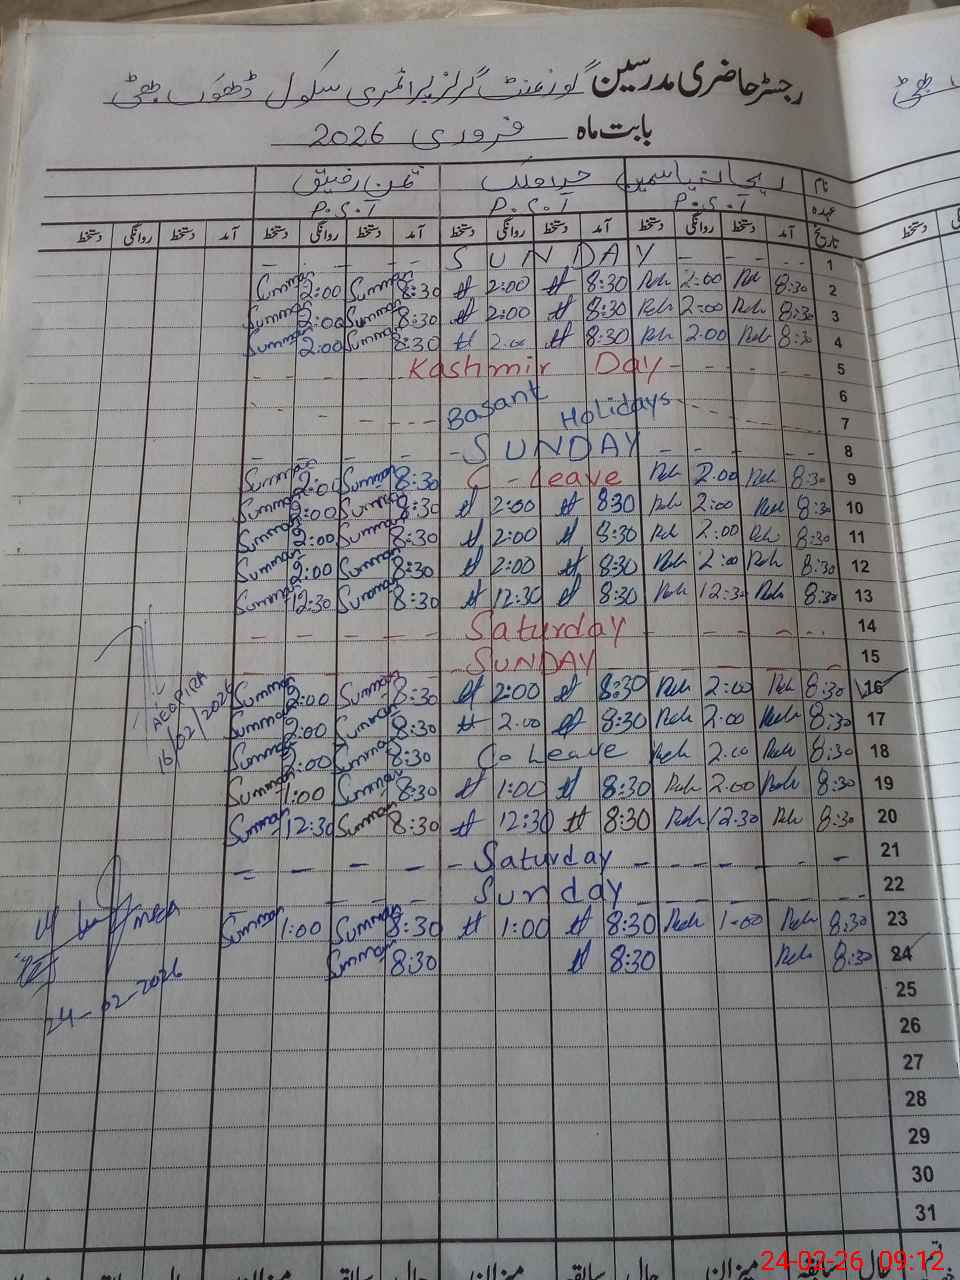 رجسٹر حاضری مدرسین گورنمنٹ گرلز پرائمری سکول ڈھوک بھٹی
بابت ماہ فروری 2026
نام ریحانہ یاسمین ملک ثمن رفیق
عہدہ P.S.T P.S.T P.S.T
تاریخ آمد دستخط روانگی دستخط آمد دستخط روانگی دستخط آمد دستخط روانگی دستخط آمد دستخط روانگی دستخط
1 SUNDAY
2 8:30 Reh 2:00 Reh 8:30 2:00 8:30 Summan 2:00 Summan
3 8:30 Reh 2:00 Reh 8:30 2:00 8:30 Summan 2:00 Summan
4 8:30 Reh 2:00 Reh 8:30 2:00 8:30 Summan 2:00 Summan
5 Kashmir Day
6 Basant
7 Holidays
8 SUNDAY
9 8:30 Reh 2:00 Reh C - Leave 8:30 Summan 2:00 Summan
10 8:30 Reh 2:00 Reh 8:30 2:00 8:30 Summan 2:00 Summan
11 8:30 Reh 2:00 Reh 8:30 2:00 8:30 Summan 2:00 Summan
12 8:30 Reh 2:00 Reh 8:30 2:00 8:30 Summan 2:00 Summan
13 8:30 Reh 12:30 Reh 8:30 12:30 8:30 Summan 12:30 Summan
14 Saturday
15 SUNDAY
16 8:30 Reh 2:00 Reh 8:30 2:00 8:30 Summan 2:00 Summan
17 8:30 Reh 2:00 Reh 8:30 2:00 8:30 Summan 2:00 Summan
18 8:30 Reh 2:00 Reh Co Leave 8:30 Summan 2:00 Summan
19 8:30 Reh 2:00 Reh 8:30 1:00 8:30 Summan 1:00 Summan
20 8:30 Reh 12:30 Reh 8:30 12:30 8:30 Summan 12:30 Summan
21 Saturday
22 Sunday
23 8:30 Reh 1:00 Reh 8:30 1:00 8:30 Summan 1:00 Summan
24 8:30 Reh 8:30 8:30 Summan
25
26
27
28
29
30
31
16/02/2026
MEA
24-02-2026
24-02-26 09:12